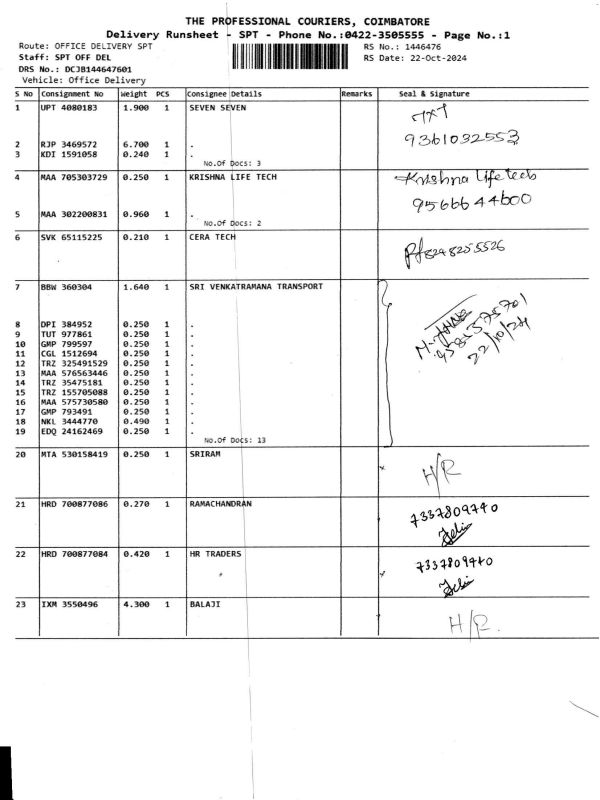 THE PROFESSIONAL COURIERS, COIMBATORE
Delivery Runsheet - SPT - Phone No.:0422-3505555 - Page No.:1
Route: OFFICE DELIVERY SPT RS No.: 1446476
Staff: SPT OFF DEL RS Date: 22-Oct-2024
DRS No.: DCJB144647601
Vehicle: Office Delivery
S No Consignment No Weight PCS Consignee Details Remarks Seal & Signature
1 UPT 4080183 1.900 1 SEVEN SEVEN
7x7
9361032553
2 RJP 3469572 6.700 1 .
3 KDI 1591058 0.240 1 .
No.Of Docs: 3
4 MAA 705303729 0.250 1 KRISHNA LIFE TECH Krishna Life tech
9566644600
5 MAA 302200831 0.960 1 .
No.Of Docs: 2
6 SVK 65115225 0.210 1 CERA TECH
8248255526
7 BBW 360304 1.640 1 SRI VENKATRAMANA TRANSPORT
9585757701
22/10/24
8 DPI 384952 0.250 1 .
9 TUT 977861 0.250 1 .
10 GMP 799597 0.250 1 .
11 CGL 1512694 0.250 1 .
12 TRZ 325491529 0.250 1 .
13 MAA 576563446 0.250 1 .
14 TRZ 35475181 0.250 1 .
15 TRZ 155705088 0.250 1 .
16 MAA 575730580 0.250 1 .
17 GMP 793491 0.250 1 .
18 NKL 3444770 0.490 1 .
19 EDQ 24162469 0.250 1 .
No.Of Docs: 13
20 MTA 530158419 0.250 1 SRIRAM
H/R
21 HRD 700877086 0.270 1 RAMACHANDRAN
7337809740
22 HRD 700877084 0.420 1 HR TRADERS
7337809740
23 IXM 3550496 4.300 1 BALAJI
H/R